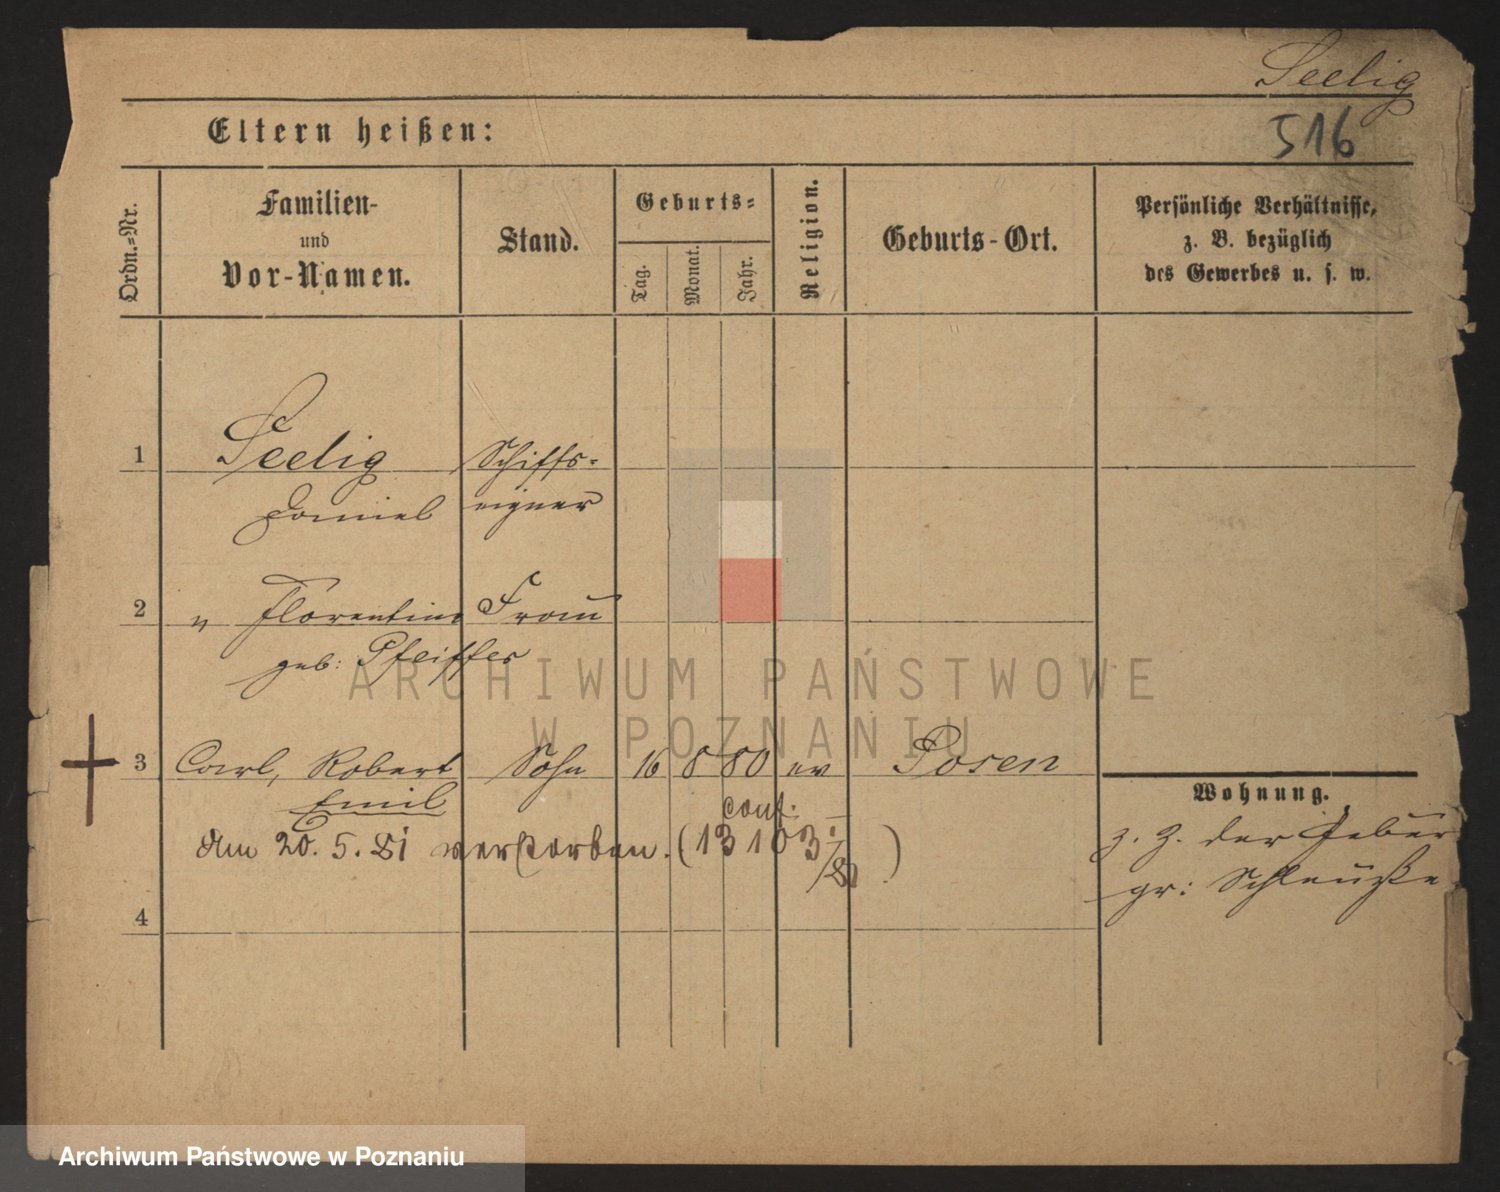 Seelig
Eltern heißen:
516
Ordn.=Nr.
Familien-
und
Vor-Namen.
Stand.
Geburts=
Tag.
Monat.
Jahr.
Religion.
Geburts-Ort.
Persönliche Verhältnisse,
z. B. bezüglich
des Gewerbes u. s. w.
1 Seelig Schiffs-
Daniel eigner
2 " Florentine Frau
geb: Pfeiffer
ARCHIWUM PAŃSTWOWE
W POZNANIU
3 Carl, Robert Sohn 16 8 80 ev Posen
Emil
Wohnung.
conf:
z. Z. der Gebur
Am 20. 5. 81 verstorben. (13103/81)
gr: Schleuße
4
Archiwum Państwowe w Poznaniu